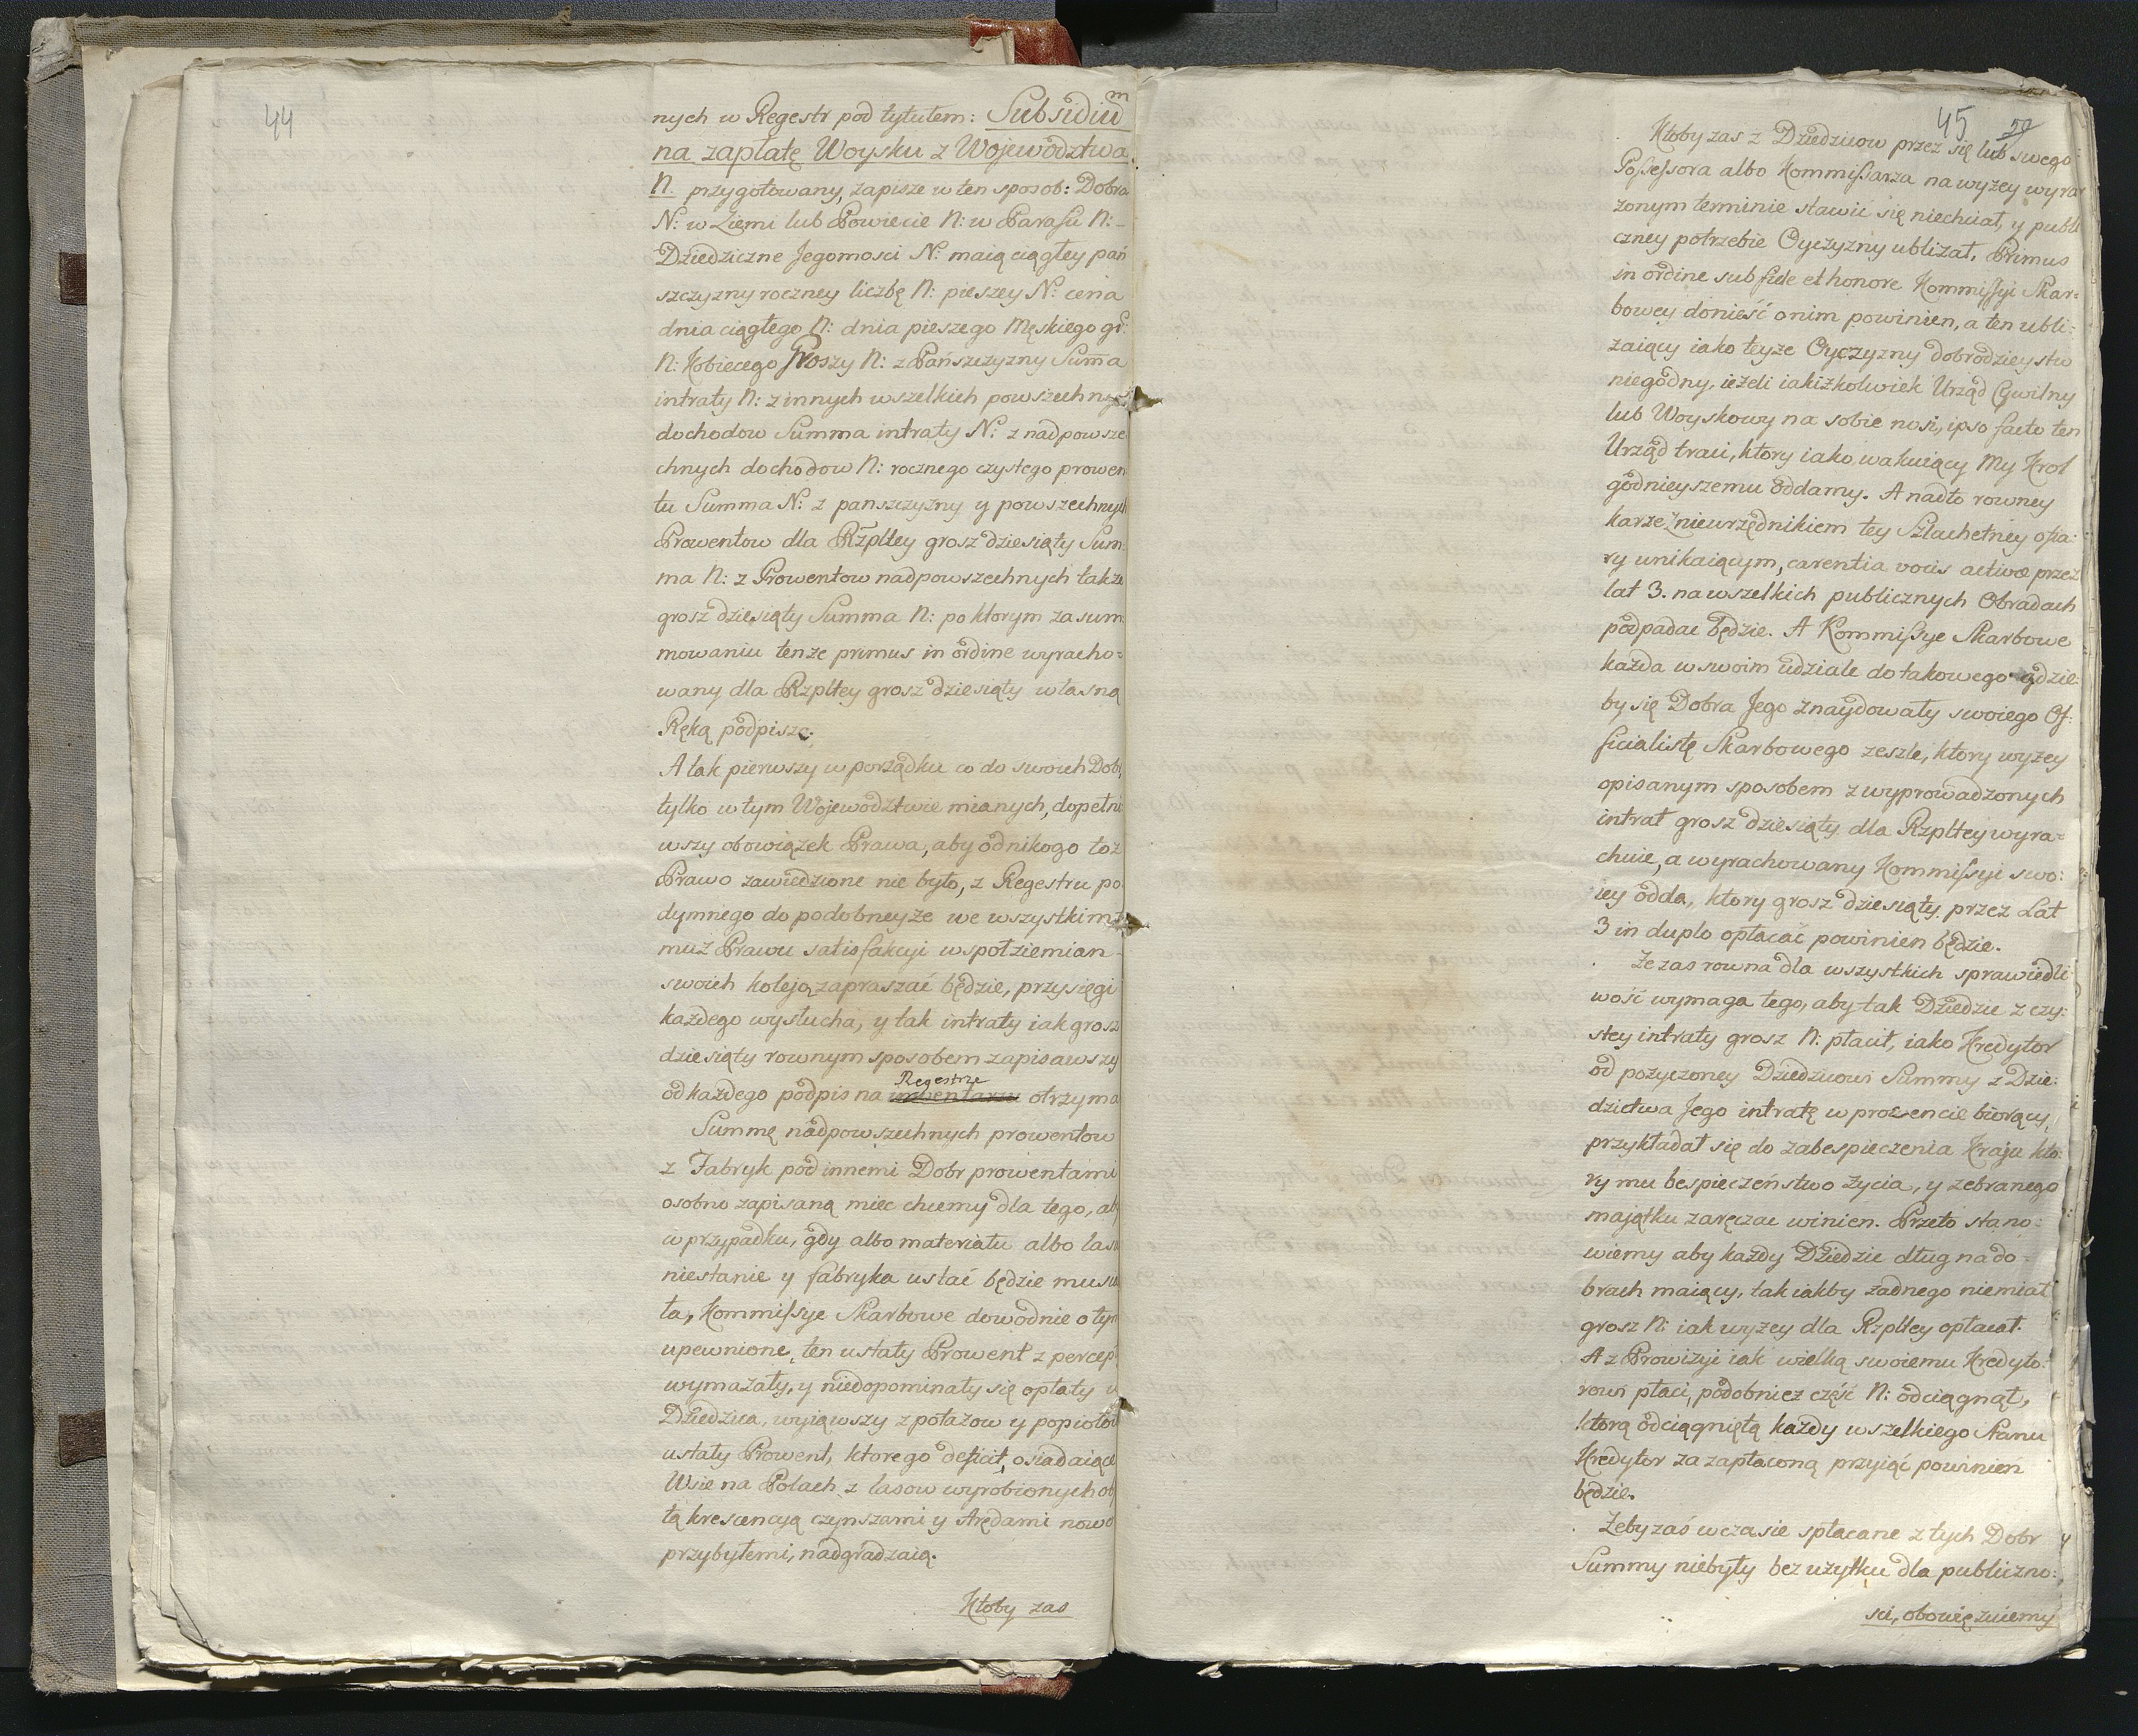 44
nych w Regestr pod tytułem: Subsidium
na zapłatę Woysku z Wojewodztwa
N. przygotowany, zapisze w ten sposob: Dobra
N: w Ziemi lub Powiecie N: w Parafii N: -
Dziedziczne Jegomosci N: maią ciągłey pań
szczyzny roczney liczbę N: pieszey N: cena
dnia ciągłego N: dnia pieszego Męskiego gr:
N: Kobiecego Groszy N: z Pańszczyzny Summa
intraty N: z innych wszelkich powszechnych
dochodow Summa intraty N: z nadpowsze
chnych dochodow N: rocznego czystego prowen
tu Summa N: z panszczyzny y powszechnych
Prowentow dla Rzpltey grosz dziesiąty Sum:
ma N: z Prowentow nadpowszechnych także
grosz dziesiąty Summa N: po ktorym zasum
mowaniu tenże primus in ordine wyracho=
wany dla Rzpltey grosz dziesiąty własną
Ręką podpisze.
A tak pierwszy w porządku co do swoich Dobr
tylko w tym Wojewodztwie mianych, dopełni
wszy obowiązek Prawa, aby od nikogo toż
Prawo zawiedzione nie było, z Regestru po
dymnego do podobneyże we wszystkim te
muż Prawu satisfakcyi wspołziemian-
swoich koleją zapraszać będzie, przysięgi
każdego wysłucha, y tak intraty iak grosz
dziesiąty rownym sposobem zapisawszy
od każdego podpis na inwentarzu Regestrze otrzyma
Summę nadpowszechnych prowentow
z Fabryk pod innemi Dobr prowentami
osobno zapisaną miec chcemy dla tego, aby
w przypadku, gdy albo materiału albo lasu
niestanie y fabryka ustać będzie musia
ła, Kommissye Skarbowe dowodnie o tym
upewnione, ten ustały Prowent z percep
wymazały, y niedopominały się opłaty u
Dziedzica, wyiąwszy z potażow y popiołow
ustały Prowent, ktorego deficit, osiadaiące
Wsie na Polach z lasow wyrobionych ob
tą krescencyą czynszami y Arędami nowo
przybyłemi, nadgradzaią.
Ktoby zas
45 50
Ktoby zas z Dziedzicow przez się lub swego
Possessora albo Kommissarza na wyżey wyra
żonym terminie stawić się niechciał, y publi
czney potrzebie Oyczyzny ubliżał, Primus
in ordine sub fide et honore Kommissyi Skar=
bowey donieść o nim powinien, a ten ubli=
żaiący iako teyże Oyczyzny dobrodzieystw
niegodny, ieżeli iakiżkolwiek Urząd Cywilny
lub Woyskowy na sobie nosi, ipso facto ten
Urząd traci, ktory iako wakuiący My Krol
godnieyszemu oddamy. A nadto rowney
karze z nieurzędnikiem tey Szlachetney ofia:
ry unikaiącym, carentia vocis activæ przez
lat 3. na wszelkich publicznych Obradach
podpadac będzie. A Kommissye Skarbowe
każda w swoim udziale do takowego gdzie
by się Dobra Jego znaydowały swoiego Of:
ficialistę Skarbowego zeszle, ktory wyżey
opisanym sposobem z wyprowadzonych
intrat grosz dziesiąty dla Rzpltey wyra=
chuie, a wyrachowany Kommissyi swo:
iey odda, ktory grosz dziesiąty przez Lat
3 in duplo opłacać powinien będzie.
Że zas rowna dla wszystkich sprawiedli
wość wymaga tego, aby tak Dziedzic z czy:
stey intraty grosz N: płacił, iako Kredytor
od pożyczoney Dziedzicowi Summy z Dzie:
dzictwa Jego intratę w procencie biorący,
przykładał się do zabespieczenia Kraju kto:
ry mu bespieczenstwo życia, y zebranego
maiątku zaręczac winien. Przeto stano:
wiemy aby każdy Dziedzic dług na do-
brach maiący, tak iakby żadnego niemiał
grosz N: iak wyżey dla Rzpltey opłacał.
A z Prowizyi iak wielką swoiemu Kredyto:
rowi płaci, podobnież część N: odciągnął,
ktorą odciągniętą każdy wszelkiego Stanu
Kredytor za zapłaconą przyiąć powinien
będzie.
Żeby zaś w czasie spłacane z tych Dobr
Summy niebyły bez użytku dla publiczno:
sci, obowięzuiemy